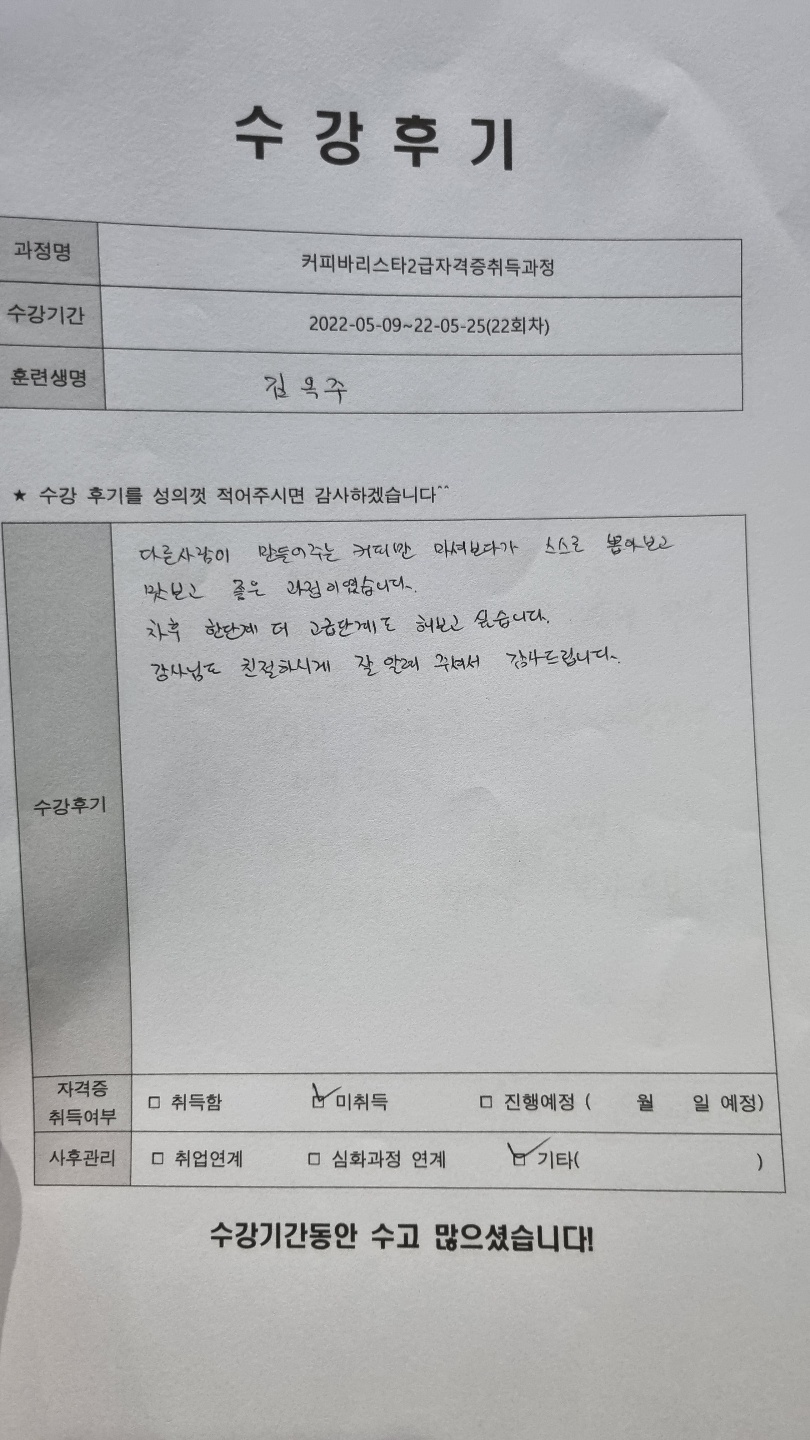 수강후기
과정명 커피바리스타2급자격증취득과정
수강기간 2022-05-09~22-05-25(22회차)
훈련생명 김옥주
★ 수강 후기를 성의껏 적어주시면 감사하겠습니다^^
다른사람이 만들어주는 커피만 마셔보다가 스스로 뽑아보고
맛보고 좋은 과정이였습니다.
차후 한단계 더 고급단계도 해보고 싶습니다.
강사님도 친절하시게 잘 알려 주셔서 감사드립니다.
수강후기
자격증
취득여부 □ 취득함 ☑ 미취득 □ 진행예정 ( 월 일 예정)
사후관리 □ 취업연계 □ 심화과정 연계 ☑ 기타( )
수강기간동안 수고 많으셨습니다!